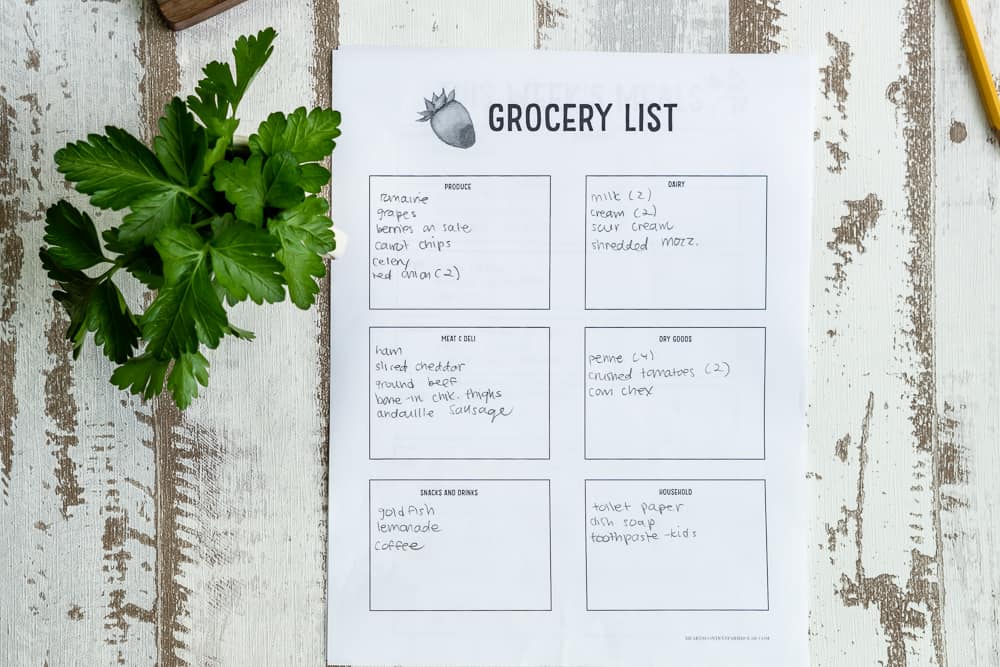 GROCERY LIST
PRODUCE
romaine
grapes
berries on sale
carrot chips
celery
red onion (2)
DAIRY
milk (2)
cream (2)
sour cream
shredded mozz.
MEAT & DELI
ham
sliced cheddar
ground beef
bone-in chik. thighs
andouille sausage
DRY GOODS
penne (4)
crushed tomatoes (2)
corn chex
SNACKS AND DRINKS
goldfish
lemonade
coffee
HOUSEHOLD
toilet paper
dish soap
toothpaste -kids